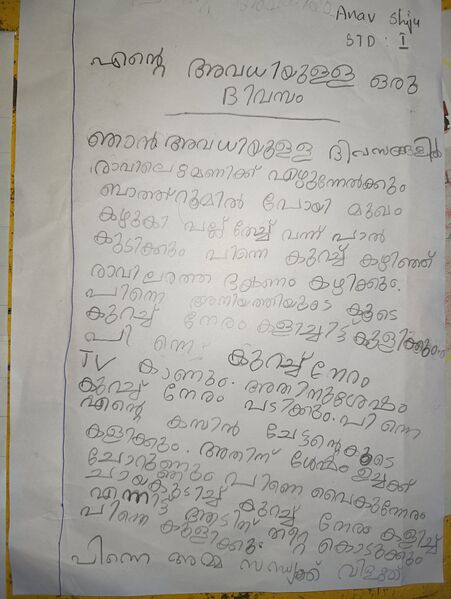 Anav Shiju
STD : I
എന്റെ അവധിയുള്ള ഒരു
ദിവസം
ഞാൻ അവധിയുള്ള ദിവസങ്ങളിൽ
രാവിലെ മണിക്ക് എഴുന്നേൽക്കും
ബാത്ത്റൂമിൽ പോയി മുഖം
കഴുകി പല്ല് തേച്ച് വന്ന് പാൽ
കുടിക്കും പിന്നെ കുറച്ച് കഴിഞ്ഞ്
രാവിലത്തെ കഴിക്കും.
പിന്നെ അനിയത്തിയുടെ കൂടെ
കുറച്ച് നേരം കളിച്ചിട്ട് കുളിക്കും.
പി ന്നെ കുറച്ച് നേരം
TV കാണും. അതിനുശേഷം
കുറച്ച് നേരം പഠിക്കും. പി ന്നെ
എന്റെ കസിൻ ചേട്ടന്റെ കൂടെ
കളിക്കും. അതിന് ശേഷം ഉച്ചക്ക്
ചോറുണ്ണും പിന്നെ വൈകുന്നേരം
ചായകുടിച്ച് കുറച്ച് നേരം കളിച്ച്
എന്നിട്ട് ആടിന് തീറ്റ കൊടുക്കും
പിന്നെ കുളിക്കും.
പിന്നെ അമ്മ സന്ധ്യക്ക് വിളക്ക്